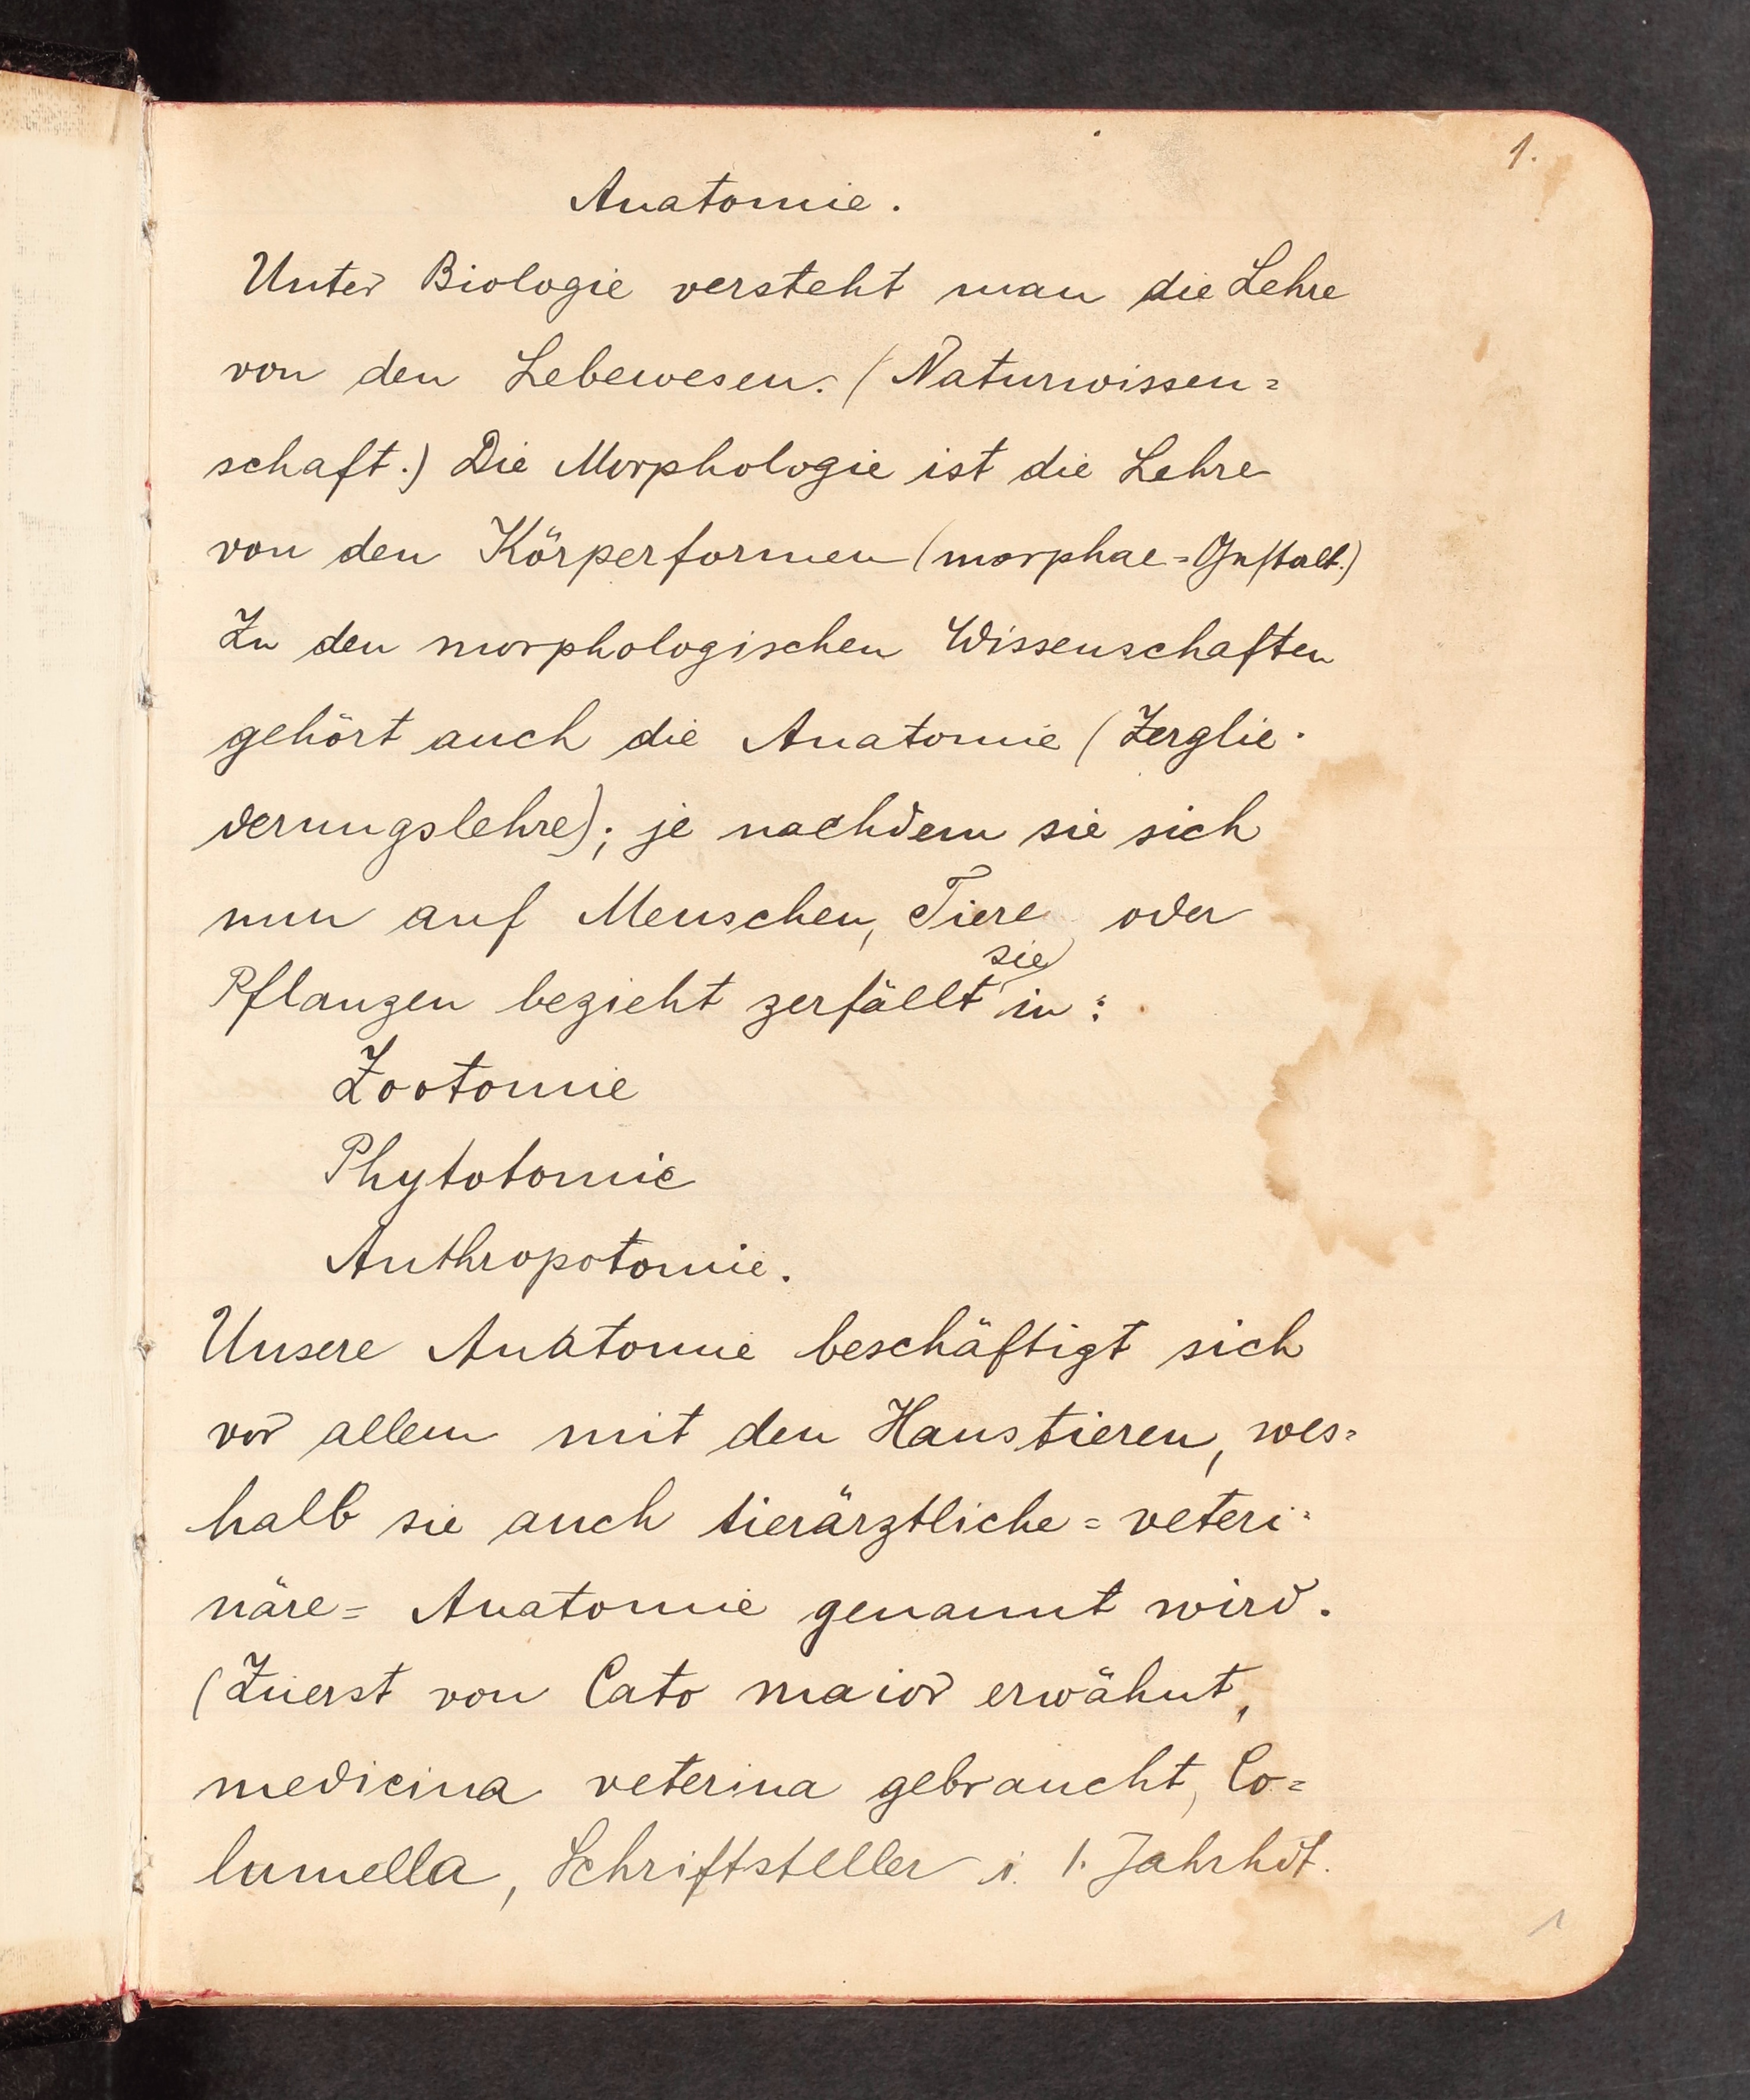 1.
Anatomie.
Unter Biologie versteht man die Lehre
von den Lebewesen. (Naturwissen=
schaft.) Die Morphologie ist die Lehre
von den Körperformen (morphae=Gestalt.)
Zu den morphologischen Wissenschaften
gehört auch die Anatomie (Zerglie-
derungslehre); je nachdem sie sich
nun auf Menschen, Tiere oder
sie
Pflanzen bezieht zerfällt in:
Zootomie
Phytotomie
Anthropotomie.
Unsere Anatomie beschäftigt sich
vor allem mit den Haustieren, wes=
halb sie auch tierärztliche = veteri=
näre= Anatomie genannt wird.
(Zuerst von Cato maior erwähnt,
medicina veterina gebraucht, Co=
lumella, Schriftsteller i. 1. Jahrhdt.
1